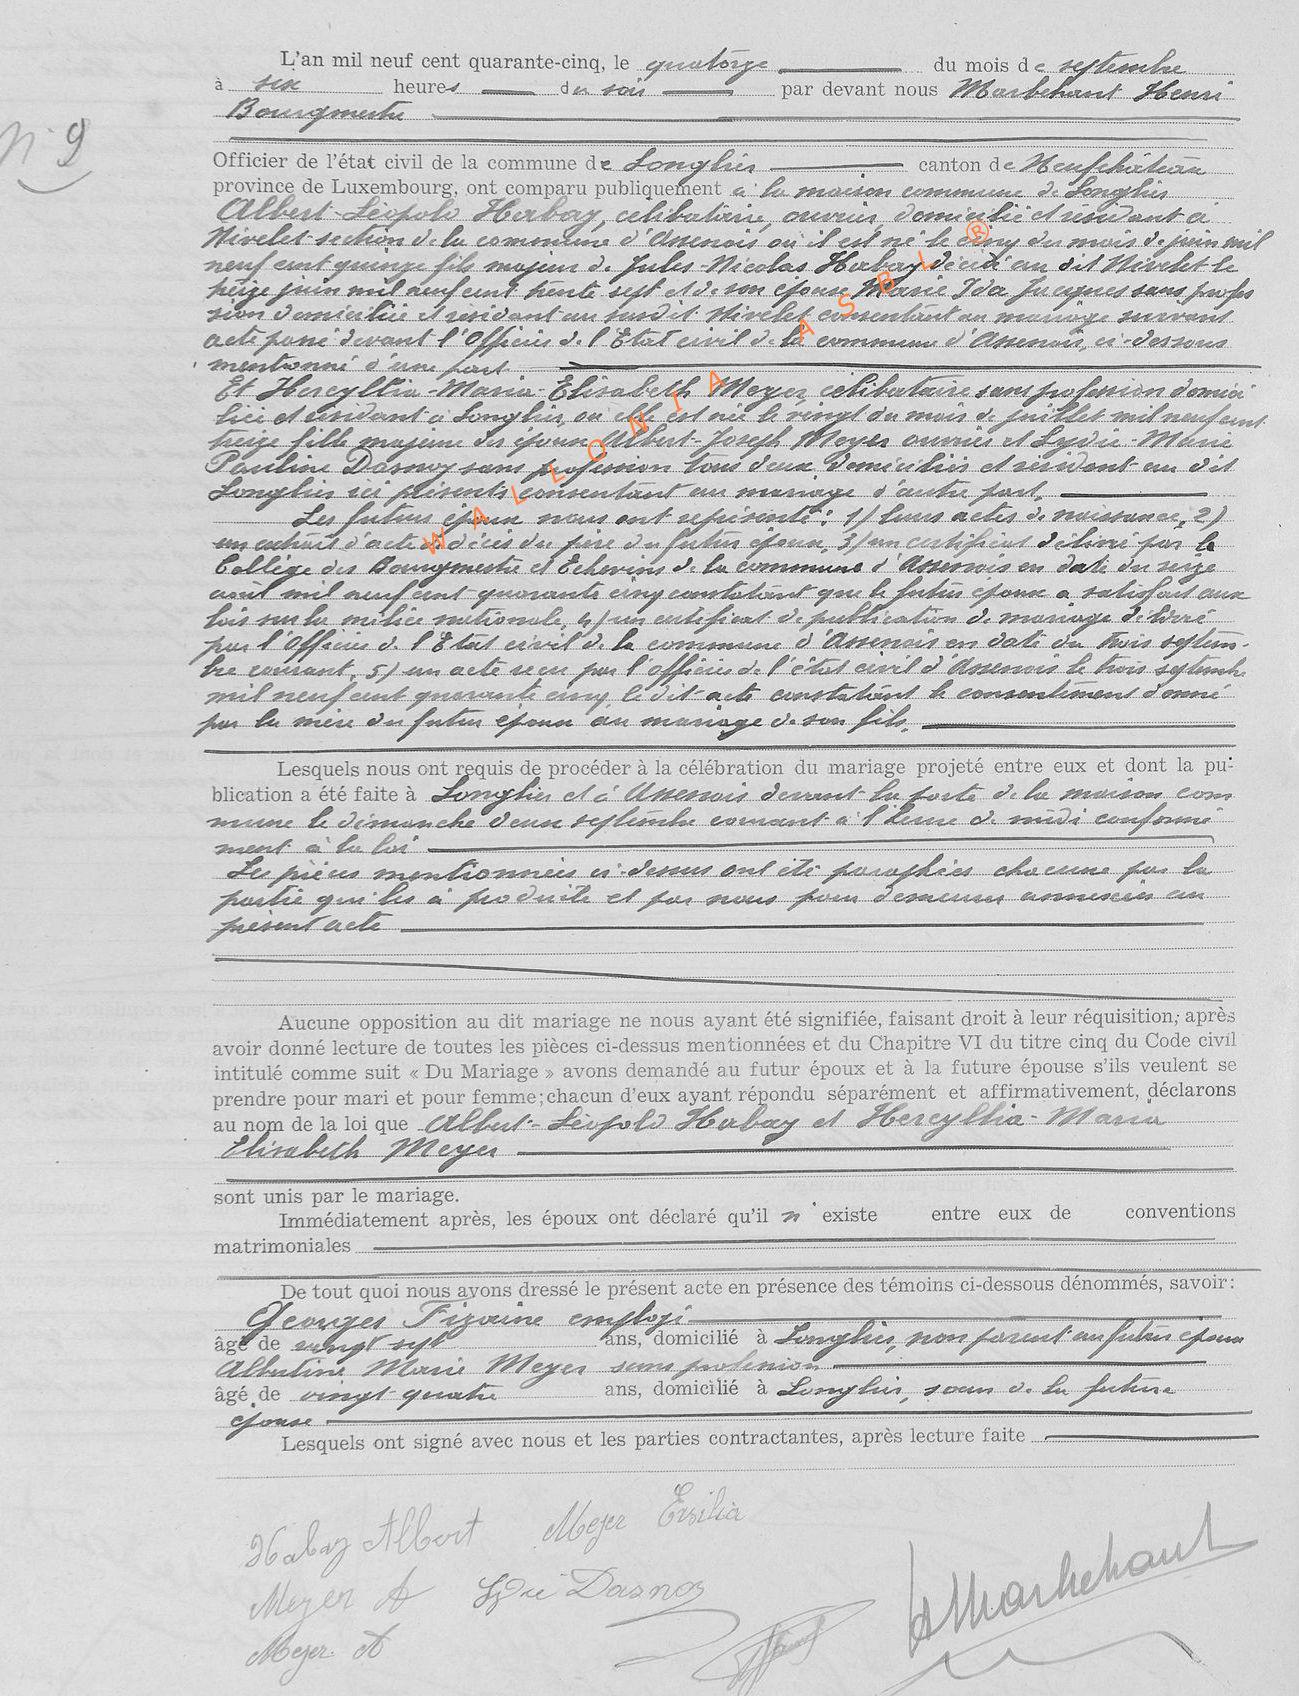 L'an mil neuf cent quarante-cinq, le quatorze du mois de septembre
à six heures du soir par devant nous Marbehant Henri
Bourgmestre
N° 9
Officier de l'état civil de la commune de Longlier canton de Neufchâteau
province de Luxembourg, ont comparu publiquement à la maison commune de Longlier
Albert-Léopold Habay, célibataire, ouvrier domicilié et résidant à
Nivelet section de la commune d'Assenois où il est né le cinq du mois de juin mil
neuf cent quinze fils majeur de Jules-Nicolas Habay décédé au dit Nivelet le
treize juin mil neuf cent trente sept et de son épouse Marie Ida Jacques sans profes
sion domiciliée et résidant au susdit Nivelet consentant au mariage suivant
acte passé devant l'Officier de l'Etat civil de la commune d'Assenois, ci-dessous
mentionné d'une part
Et Hercyllia-Maria-Elisabeth Meyer célibataire sans profession domici
liée et résidant à Longlier, où elle est née le vingt du mois de juillet mil neuf cent
treize fille majeure des époux Albert-Joseph Meyer ouvrier et Lydie-Marie
Pauline Dasnoy sans profession tous deux domiciliés et résidant au dit
Longlier ici présents consentant au mariage d'autre part.
Les futurs époux nous ont représenté: 1) leurs actes de naissance, 2)
un extrait d'acte de décès du père du futur époux, 3) un certificat délivré par le
Collège des Bourgmestre et Echevins de la commune d'Assenois en date du seize
août mil neuf cent quarante cinq constatant que le futur époux a satisfait aux
lois sur la milice nationale, 4) un certificat de publication de mariage délivré
par l'Officier de l'Etat civil de la commune d'Assenois en date du trois septem-
bre courant, 5) un acte reçu par l'officier de l'état civil d'Assenois le trois septembre
mil neuf cent quarante cinq, le dit acte constatant le consentement donné
par la mère du futur époux au mariage de son fils.
Lesquels nous ont requis de procéder à la célébration du mariage projeté entre eux et dont la pu-
blication a été faite à Longlier et à Assenois devant la porte de la maison com
mune le dimanche deux septembre courant à l'heure de midi conformé
ment à la loi
Les pièces mentionnées ci-dessus ont été paraphées chacune par la
partie qui les à produite et par nous pour demeurer annexées au
présent acte
Aucune opposition au dit mariage ne nous ayant été signifiée, faisant droit à leur réquisition; après
avoir donné lecture de toutes les pièces ci-dessus mentionnées et du Chapitre VI du titre cinq du Code civil
intitulé comme suit « Du Mariage » avons demandé au futur époux et à la future épouse s'ils veulent se
prendre pour mari et pour femme; chacun d'eux ayant répondu séparément et affirmativement, déclarons
au nom de la loi que Albert-Léopold Habay et Hercyllia-Maria
Elisabeth Meyer
sont unis par le mariage.
Immédiatement après, les époux ont déclaré qu'il n'existe entre eux de conventions
matrimoniales
De tout quoi nous avons dressé le présent acte en présence des témoins ci-dessous dénommés, savoir:
Georges Fizaine employé
âgé de vingt sept ans, domicilié à Longlier, non parent au futur époux
Albertine Marie Meyer sans profession
âgé de vingt quatre ans, domicilié à Longlier, sœur de la future
épouse
Lesquels ont signé avec nous et les parties contractantes, après lecture faite
Habay Albert Meyer Ersilia
Meyer A Lydie Dasnoy
Meyer A
HMarbehant
WALLONIA ASBL ®